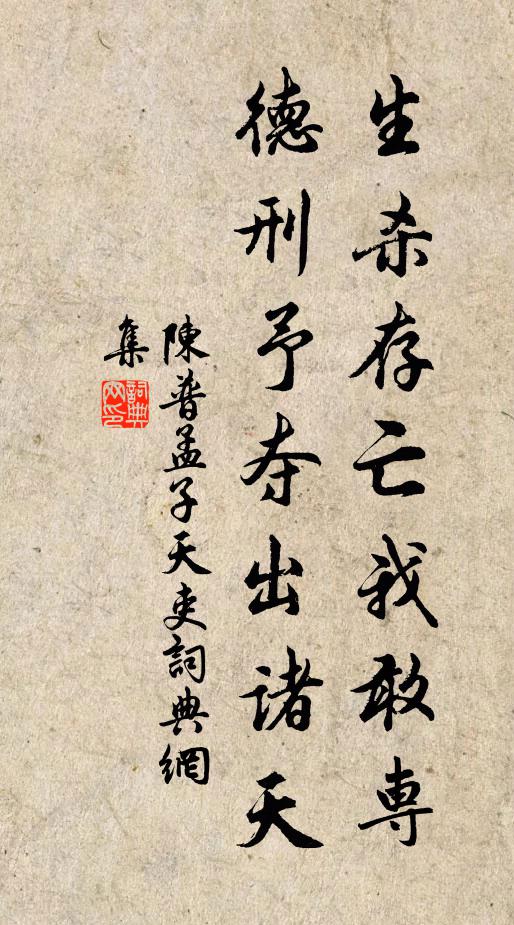 生杀存亡我敢専
德刑予夺出诸天
陳普孟子天吏詞典網
集
詞典網印